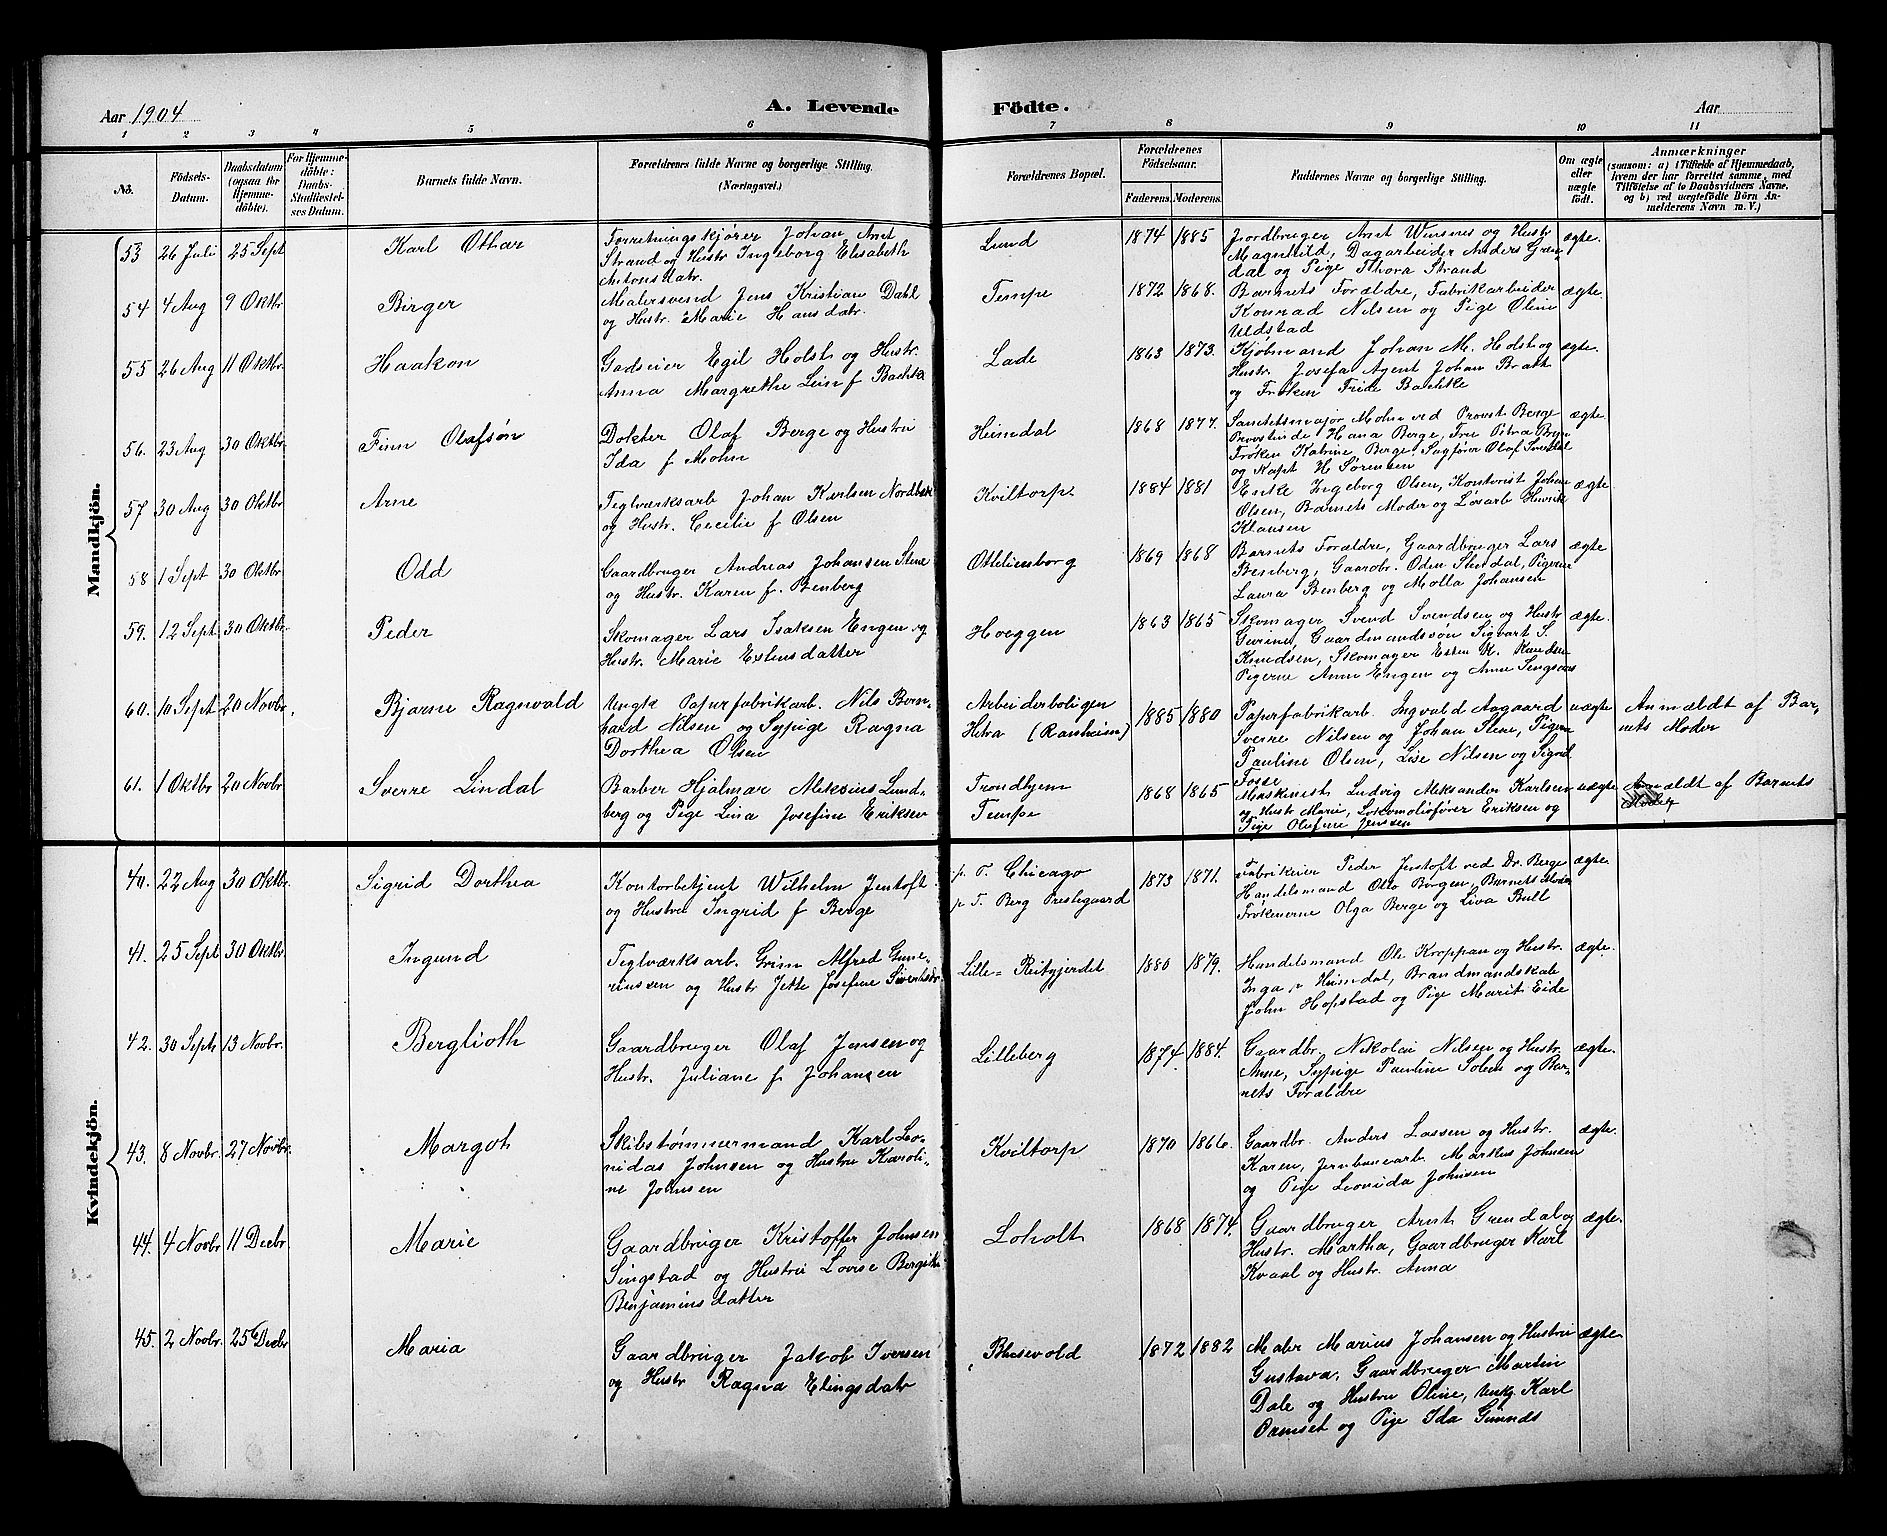 Aar 1904
A. Levende Födte.
Aar
1 2 3 4 5 6 7 8 9 10 11
No.
Födsels-
Datum.
Daabsdatum
(ogsaa for
Hjemme-
döbte).
For Hjemme-
döbte:
Daabs-
Stadfæstel-
ses Datum.
Barnets fulde Navn.
Forældrenes fulde Navne og borgerlige Stilling.
(Næringsvei.)
Forældrenes Bopæl.
Forældrenes
Födselsaar.
Faderens. Moderens.
Faddernes Navne og borgerlige Stilling.
Om ægte
eller
uægte
födt.
Anmærkninger
(saasom: a) i Tilfælde af Hjemmedaab,
hvem der har forrettet samme, med
Tilföielse af to Daabsvidners Navne,
og b) ved uægtefödte Börn An-
melderens Navn m. V.)
Mandkjön.
53 26 Juli 25 Sept Karl Othar
Forretningskjører Johan Arnt
Strand og Hustr Ingeborg Elisabeth
Antonsdatr.
Lund 1874 1885
Jordbruger Arnt Winsnes og Hustr
Magnhild, Dagarbeider Anders Gren-
dal og Pige Thora Strand
ægte.
54 4 Aug 9 Oktbr Birger
Malersvend Jens Kristian Dahl
og Hustr. Marie Hansdatr.
Tempe 1872 1868.
Barnets Forældre, Fabrikarbeider
Konrad Nilsen og Pige Oline
Udstad
ægte.
55 26 Aug 11 Oktbr. Haakon
Godseier Egil Holst og Hustr.
Anna Margrethe Lein f Bachke
Lade 1863 1873.
Kjøbmand Johan M. Holst og
Hustr. Josefa, Agent Johan Bratt
og Frøken Fride Bachke
ægte.
56. 23 Aug 30 Oktbr Finn Olafsön
Dokter Olaf Berge og Hustru
Ida f Mohn
Heimdal 1868 1877.
Sanitetsmajor Mohn ved Provst Berge
Provstinde Hana Berge, Fru Petra Bryn
Frøken Katrine Berge, Sagfører Olaf
og Kapt H Sørensen
ægte
57 30 Aug 30 Oktbr Arne
Teglværksarb Johan Karlsen Nordbæk
og Hustr. Cecilie f Olsen
Kviltorp 1884 1881
Enke Ingeborg Olsen, Kontorist Johan
Olsen, Barnets Moder og Løsarb Henrik
Klausen
ægte
58 1 Sept 30 Oktbr Odd
Gaardbruger Andreas Johansen Stene
og Hustr. Karen f. Benberg
Othilienborg 1869 1868
Barnets Forældre, Gaardbruger Lars
Benberg, Gaardbr. Oden Stendal, Pigerne
Laura Benberg og Molla Johansen
ægte
59. 12 Sept 30 Oktbr. Peder
Skomager Lars Isaksen Engen og
Hustr. Marie Estensdatter
Hoeggen 1863 1865
Skomager Svend Svendsen og Hustr
Gurine, Gaardmandssøn Sigvart S.
Knudsen, Skomager Esten K. Knudsen
Pigerne Anna Engen og Anne Singsaas
ægte.
60. 10 Sept 20 Novbr. Bjarne Ragnvald
Ungk Papirfabrikarb. Nils Bern-
hard Nilsen og Sypige Ragna
Dorthea Olsen
Arbeiderboligen
Hetra (Ranheim) 1885 1880
Papirfabrikarb. Ingvald Aagaard
Sverre Nilsen og Johan Stene, Pigerne
Pauline Olsen, Lise Nilsen og Sigrid
Fosse
uægte
Anmældt af Bar-
nets Moder
61. 1 Oktbr 20 Novbr Sverre Lindal
Barber Hjalmar Aleksius Lund-
berg og Pige Lina Josefine Eriksen
Trondhjem
Tempe 1868 1865
Maskinist Ludvig Aleksander Karlsen
og Hustr Marie, Lokomotivfører Eriksen og
Pige Olufine Jenssen
uægte
Anmældt af Barnets
Moder
Kvindekjön.
40. 22 Aug 30 Oktbr. Sigrid Dorthea
Kontorbetjent Wilhelm Jentoft
og Hustru Ingrid f Berge
p. T. Chicago
p T. Berg Prestegaard 1873 1871.
Fabrikeier Peder Jentoft ved Dr. Berge
Handelsmand Otto Borgen, Barnets Moder
Frøknerne Olga Berge og Liva Bull
ægte
41. 25 Sept 30 Oktbr. Ingund
Teglværksarb. Grim Alfred Gune-
riussen og Hustr Jette Josefine Sivertsdtr.
Lille-Reitgjerdet 1880 1879.
Handelsmand Ole Kroppan og Hustr.
Inga p Heimdal, Brandmandskab
John Hopstad og Pige Marit Eide
ægte.
42. 30 Sept 13 Novbr. Berglioth
Gaardbruger Olaf Jensen og
Hustr. Juliane f Johansen
Lilleberg 1874. 1884.
Gaardbr. Nikolai Nilsen og Hustr
Anne, Sypige Pauline Solem og Bar-
nets Forældre
ægte.
43. 8 Novbr. 27 Novbr. Margoth
Skibstømmermand Karl Leo-
nidas Johnsen og Hustru Karoli-
ne Johnsen
Kviltorp 1870 1866.
Gaardbr. Anders Lassen og Hustr.
Karen, Jernbanearb. Markus Johnsen
og Pige Leonida Johnsen
ægte.
44. 4 Novbr 11 Decbr Marie
Gaardbruger Kristoffer Johnsen
Singstad og Hustru Lovise Bergithe
Benjaminsdatter
Loholt 1868 1874.
Gaardbruger Arnt Grendal og
Hustr. Martha, Gaardbruger Karl
Kvaal og Hustr. Anna
ægte.
45. 2 Novbr. 25 Decbr Maria
Gaardbruger Jakob Iversen
og Hustr Ragna Elingsdatr
Blusevold 1872 1882
Maler Marius Johansen og Hustru
Gustava, Gaardbruger Martin
Dale og Hustru Oline, Ungk. Karl
Damset og Pige Ida
ægte.